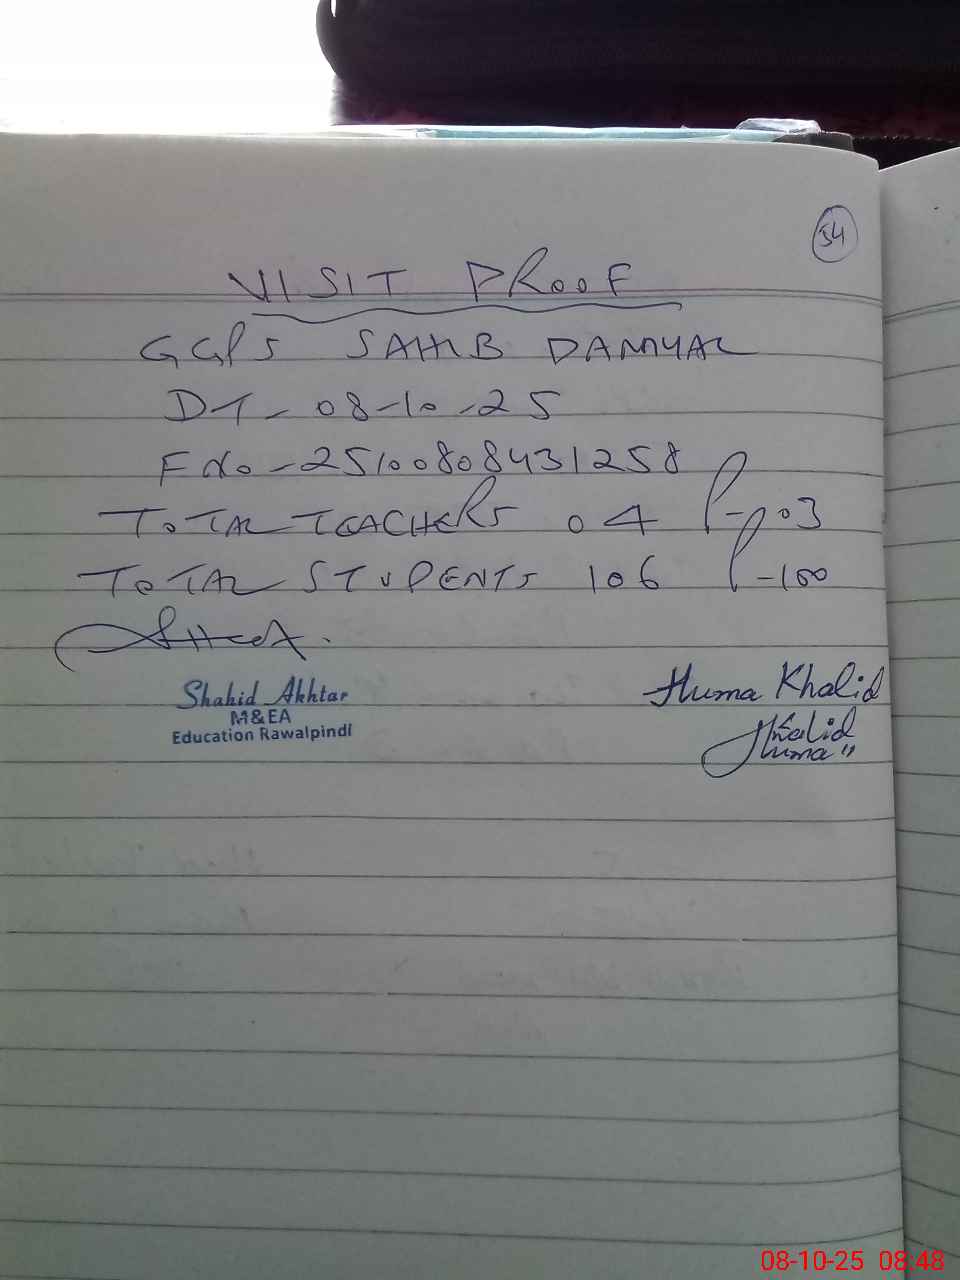 54
VISIT PROOF
GGPS SAHIB DAMYAL
DT- 08-10-25
F No - 25100808431258
TOTAL TEACHERS 04 P-03
TOTAL STUDENTS 106 P-100
Shahid Akhtar
M&EA
Education Rawalpindi
Huma Khalid
Khalid
Huma"
08-10-25 08:48